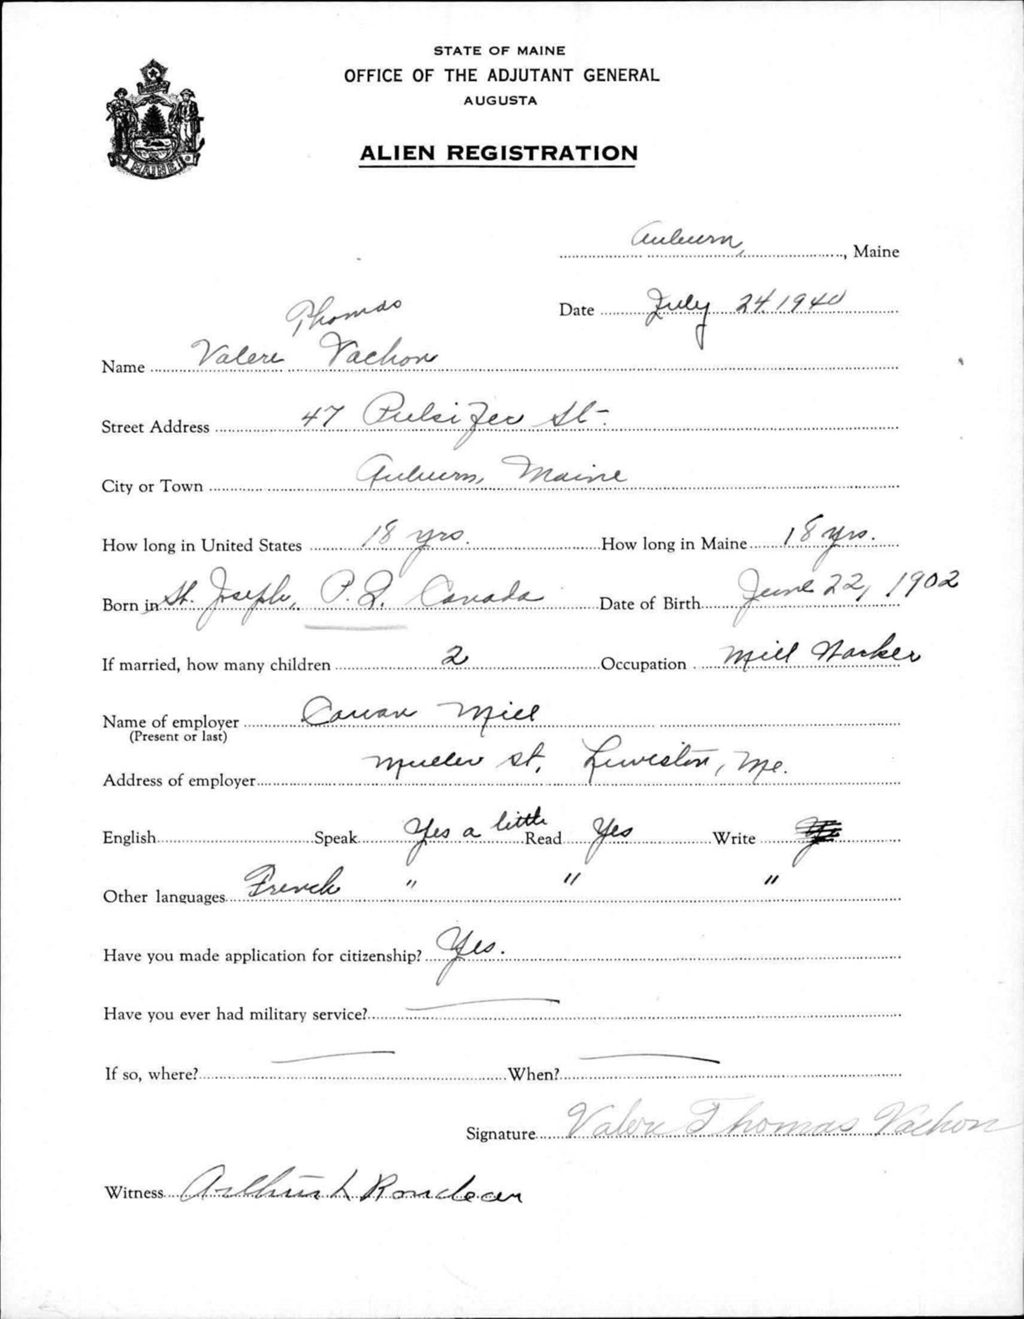 STATE OF MAINE
OFFICE OF THE ADJUTANT GENERAL
AUGUSTA
ALIEN REGISTRATION
Auburn, Maine
Date July 24 1940
Thomas
Name Valere Vachon
Street Address 47 Pulsifer St.
City or Town Auburn, Maine
How long in United States 18 yrs. How long in Maine 18 yrs.
Born in St. Joseph, P.Q. Canada Date of Birth June 22, 1902
If married, how many children 2 Occupation Mill Worker
Name of employer Cowan Mill
(Present or last)
Address of employer St. Lewiston, Me.
English Speak Yes a little Read Yes Write
Other languages French " " "
Have you made application for citizenship? Yes.
Have you ever had military service?
If so, where? When?
Signature Valere Thomas Vachon
Witness Arthur L Rondeau
MAINE